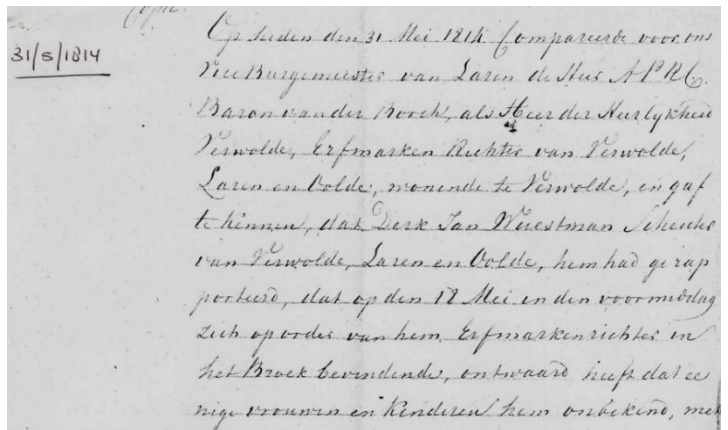 Copie.
31/5/1814
Op heden den 31 Mei 1814 Compareerde voor ons
Vice Burgemeester van Laren de Heer A P R C
Baron van der Borch, als Heer der Heerlykheid
Verwolde, Erfmarken Richter van Verwolde,
Laren en Oolde, wonende te Verwolde, en gaf
te kennen, dat Derk Jan Weestman Scheuter
van Verwolde, Laren en Oolde, hem had gerap
porteerd, dat op den 12 Mei in den voormiddag
zich op order van hem Erfmarkenrichter in
het Broek bevindende, ontwaard heeft dat ee
nige vrouwen en Kinderen hem onbekend, met